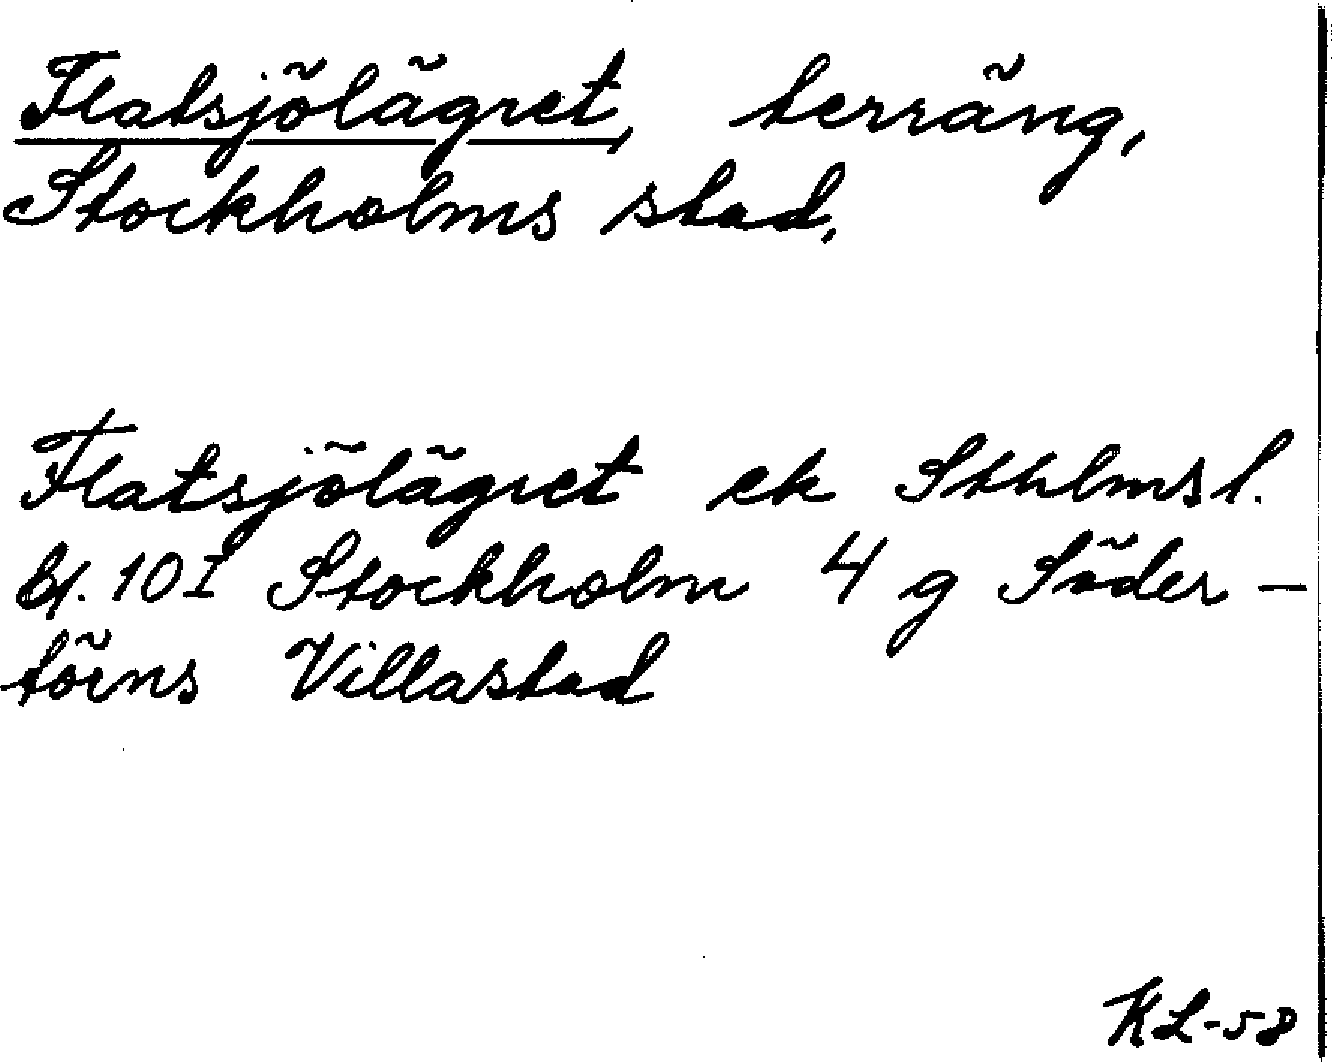 Flatsjölägret, terräng,
Stockholms stad.
Flatsjölägret ek Sthlmsl.
bl. 10 I Stockholm 4 g Söder-
törns Villastad
KL-58